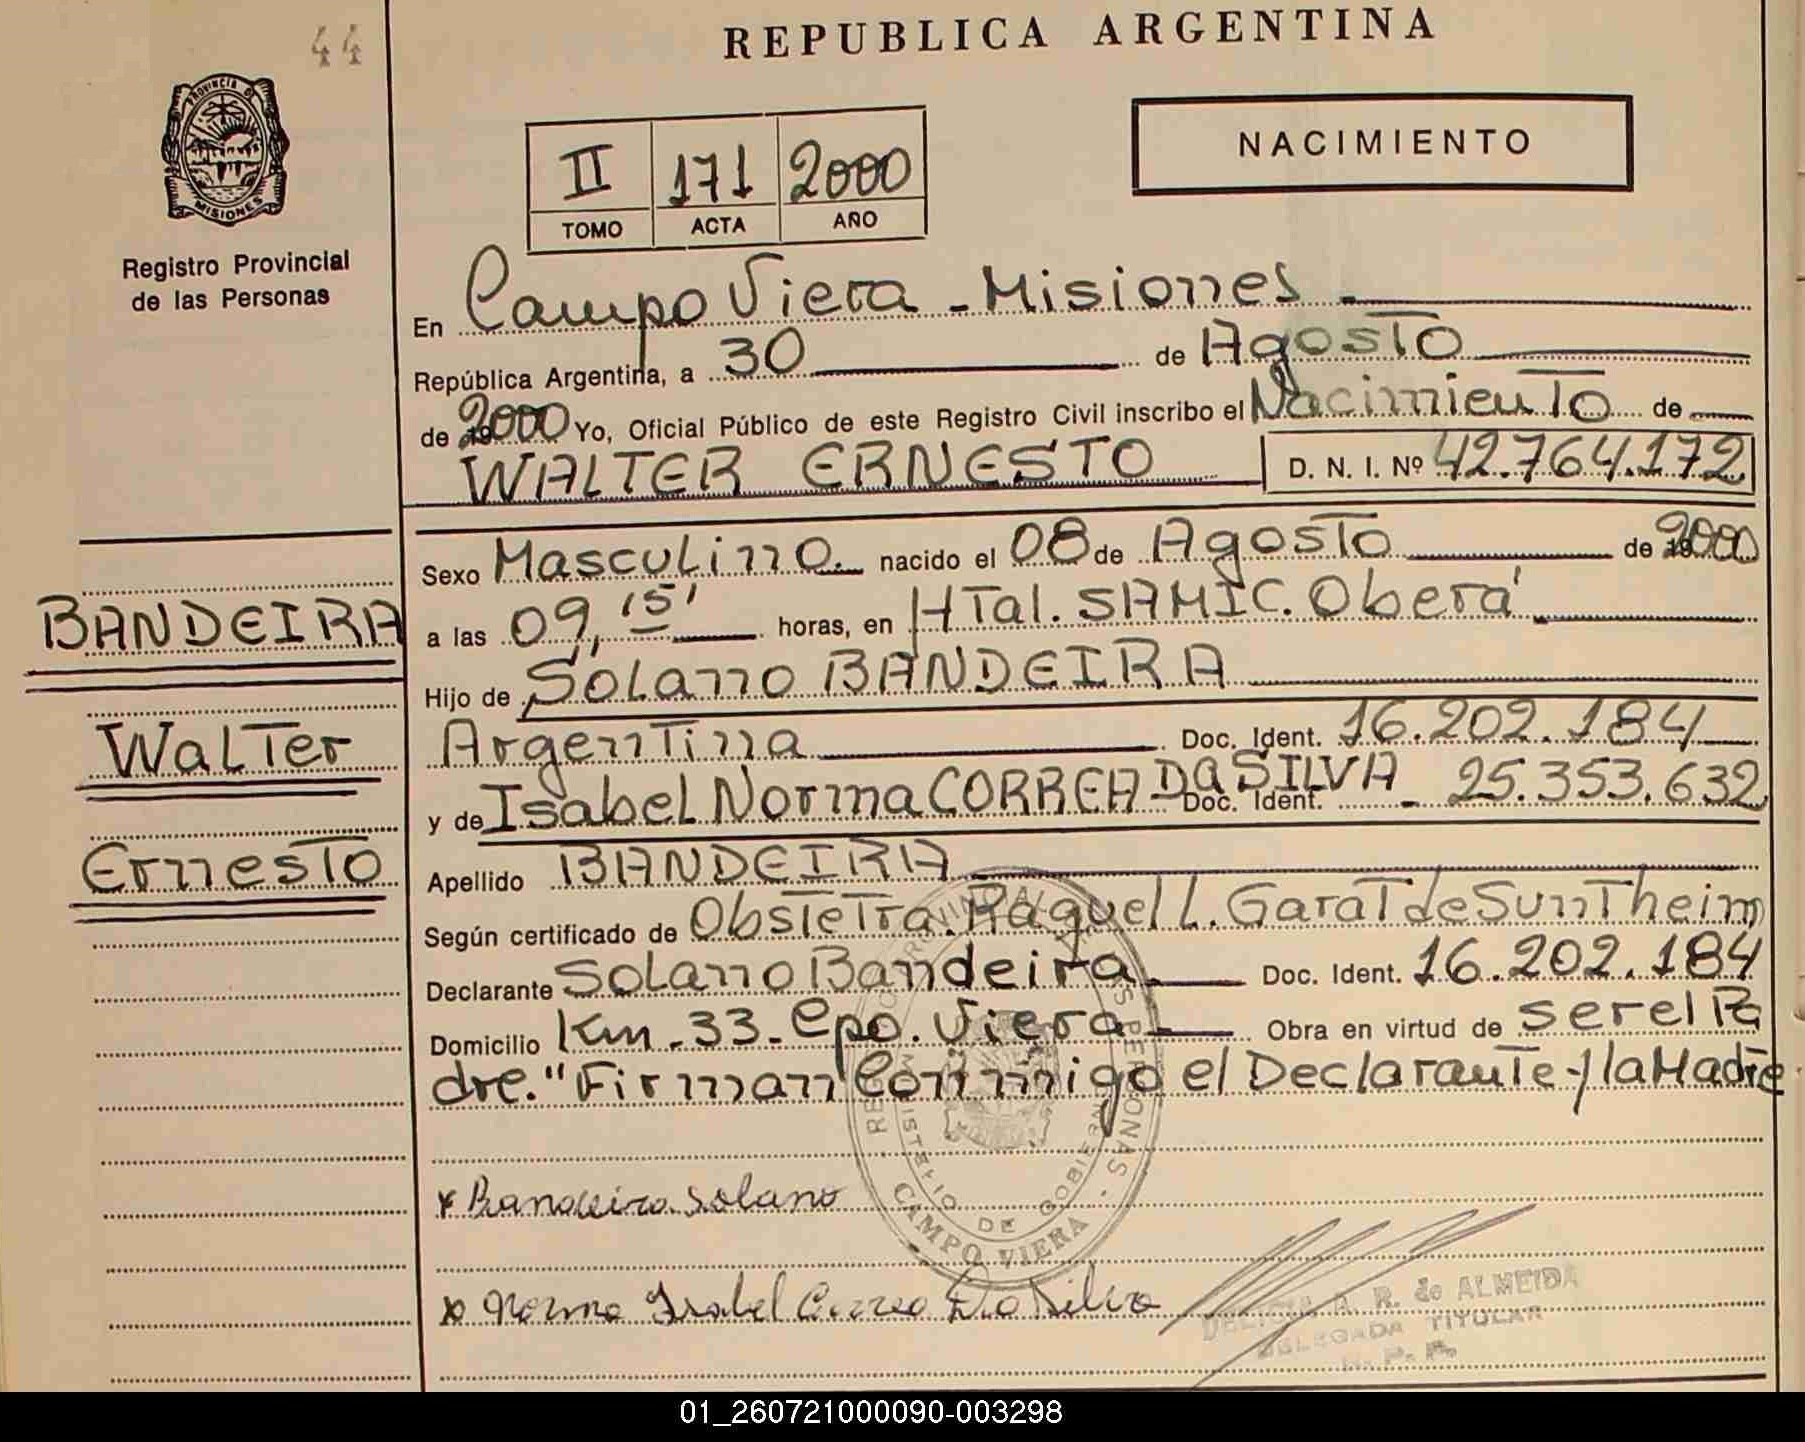 44
REPUBLICA ARGENTINA
PROVINCIA DE
MISIONES
Registro Provincial
de las Personas
II 171 2000
TOMO ACTA AÑO
NACIMIENTO
En Campo Viera - Misiones
República Argentina, a 30 de Agosto
de 2000 Yo, Oficial Público de este Registro Civil inscribo el Nacimiento de
WALTER ERNESTO D. N. I. Nº 42.764.172
Sexo Masculino. nacido el 08 de Agosto de 2000
a las 09,15' horas, en HTal. SAMIC. Oberá
Hijo de Solano BANDEIRA
Argentina Doc. Ident. 16.202.184
y de Isabel Norma CORREA Da SILVA Doc. Ident. - 25.353.632
Apellido BANDEIRA
Según certificado de Obstetra. Raquel L. Garat de Suntheim
Declarante Solano Bandeira Doc. Ident. 16.202.184
Domicilio Km - 33 - Cpo. Viera Obra en virtud de ser el Pa
dre." Firman Conmigo el Declarante y la Madre
BANDEIRA
Walter
Ernesto
x Bandeira Solano
x Norma Isabel Correa Da Silva
CAMPO VIERA
MINISTERIO DE GOBIERNO
R. de ALMEIDA
DELEGADA TITULAR
R. P. P.
01_260721000090-003298